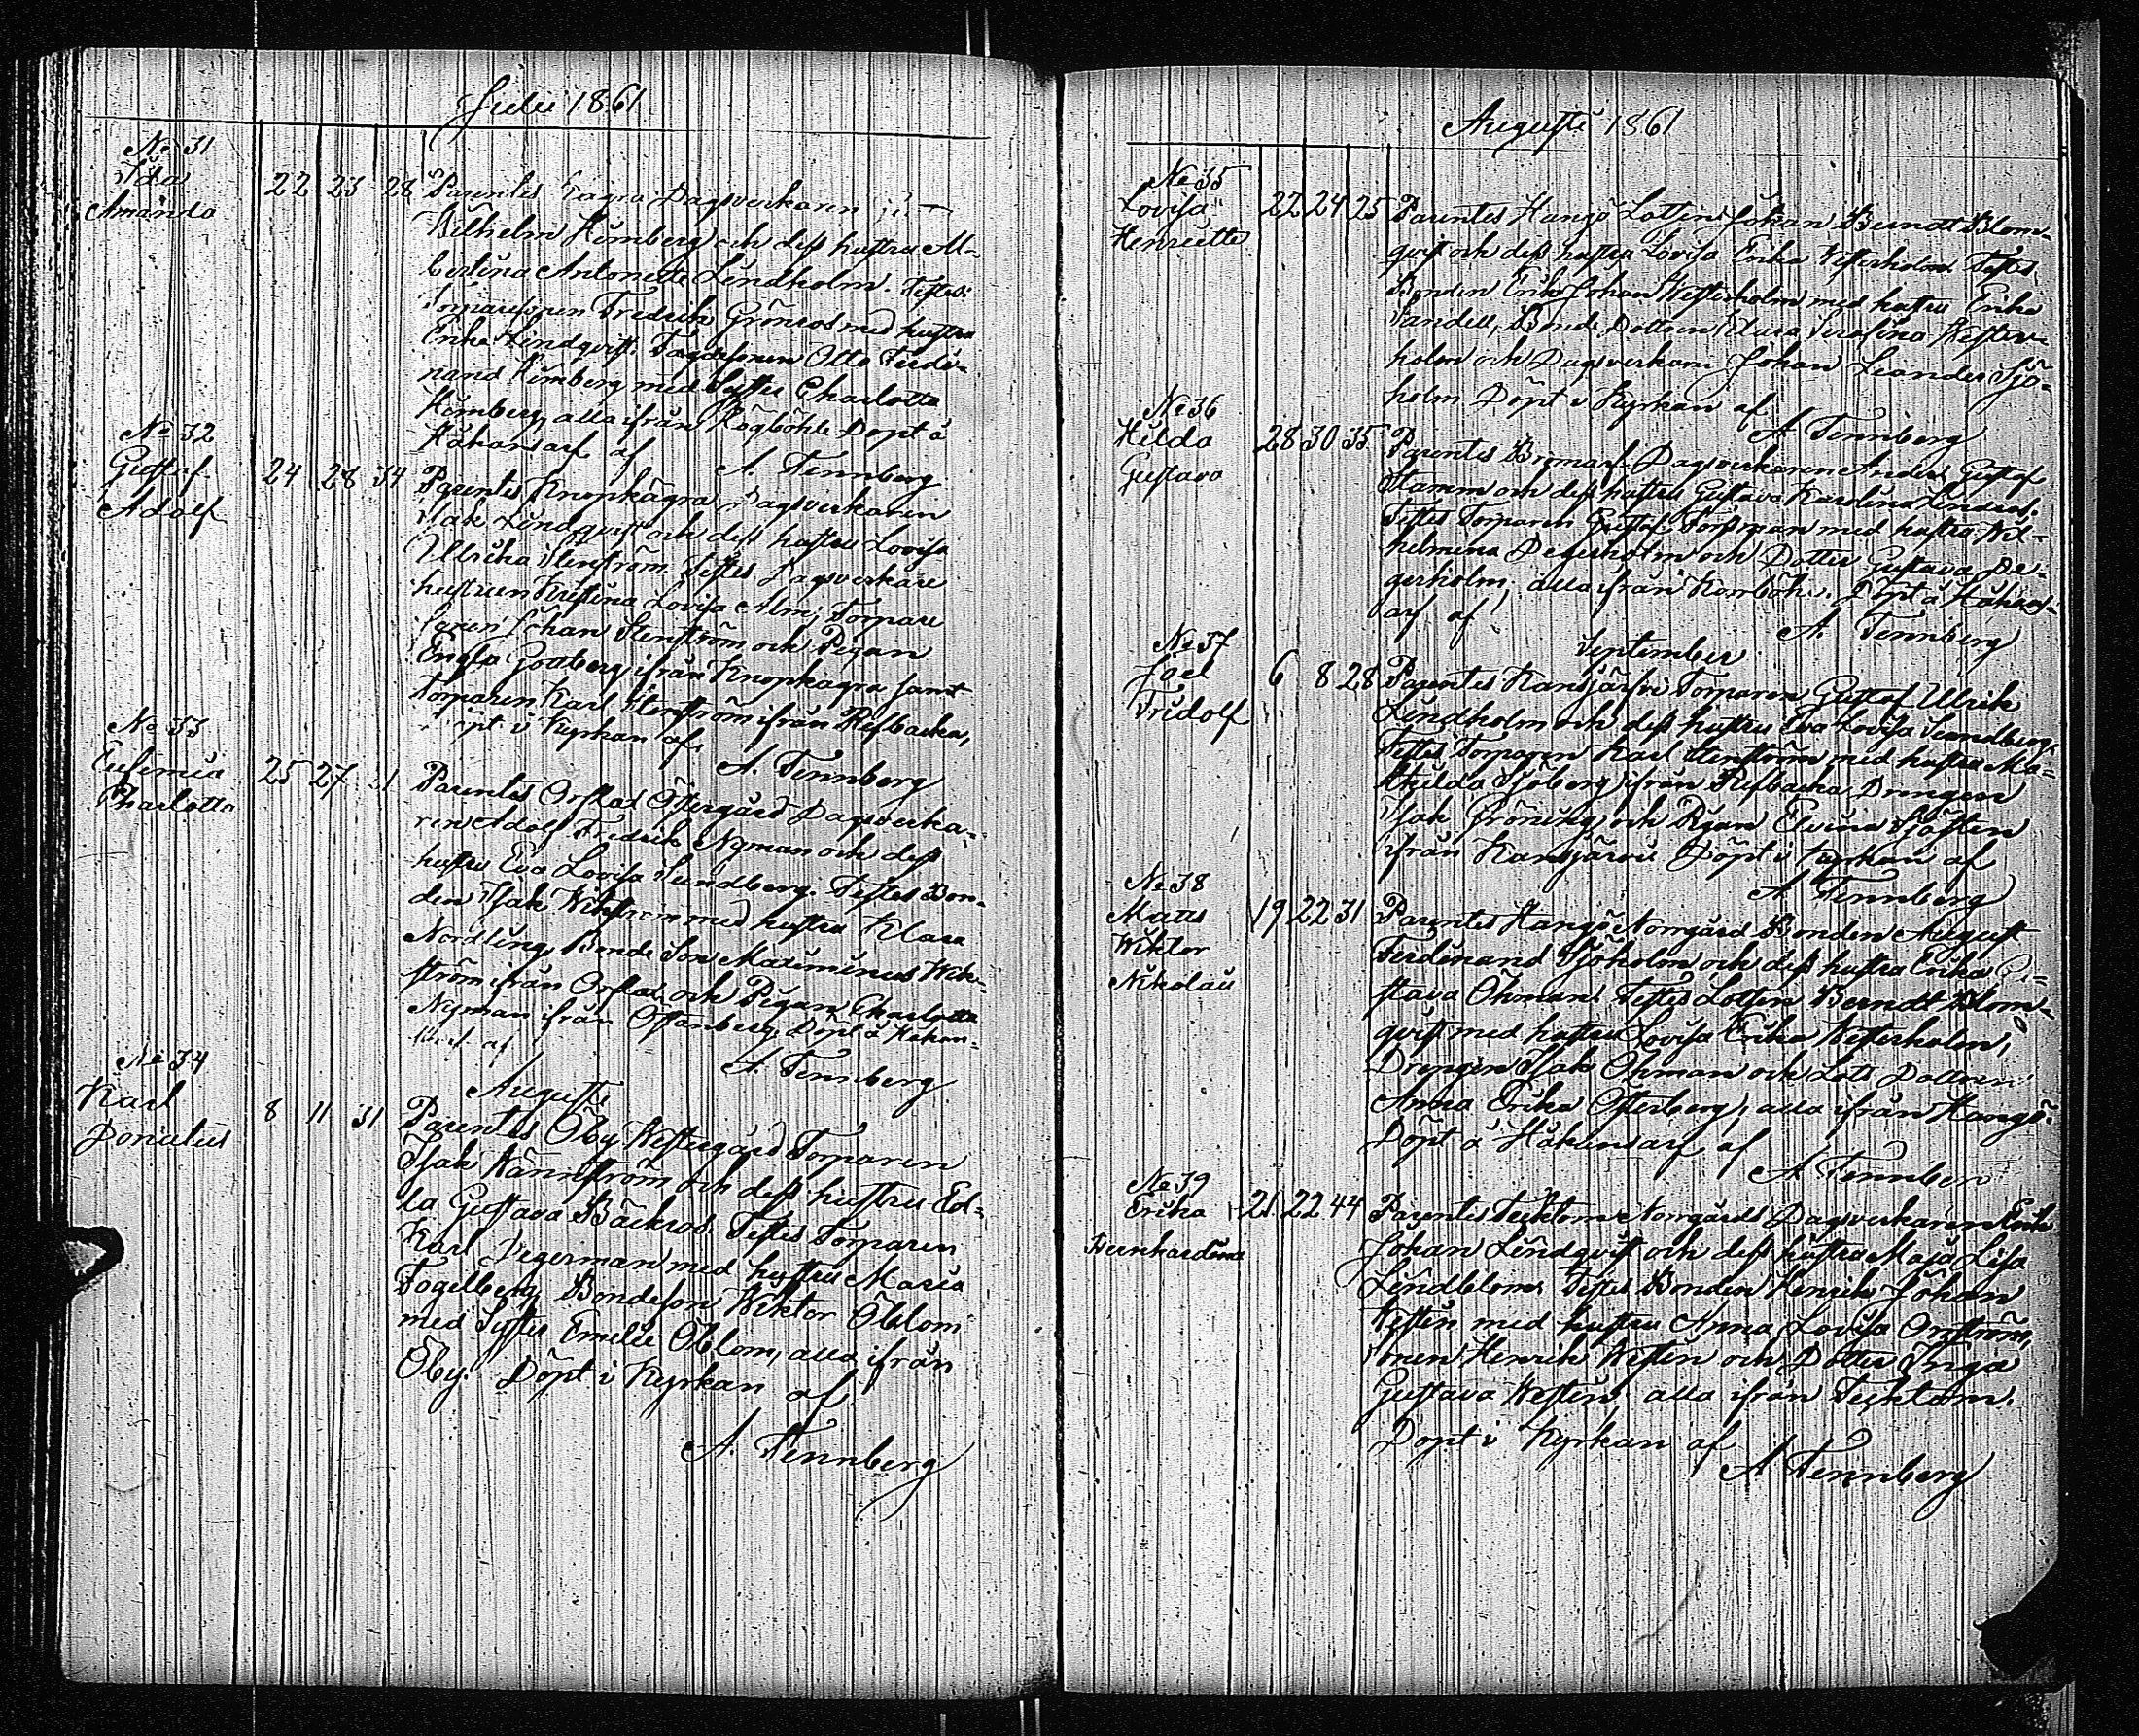 Julii 1861
No 31
Ida
Amanda
22 23 28 Parentes Dagsverkaren
Wilhelm Himberg och dess hustru Al-
bertina Antonette Lindholm. Testes:
Torparesonen Fredrik Grönros med hustru
Erika Lindqvist. Otto Ferdi-
nand Himberg med Syster Charlotta
Himberg, alla ifrån Rögböhle Döpt å
Håkansarf af A. Tennberg
No 32
Gustaf
Adolf
24 28 34 Parentes Knopkägra Dagsverkaren
Isak Lindqvist och dess hustru Lovisa
Ullrika Stenström. Testes Dagsverkare
hustrun Kristina Lovisa Alm, Torpare
sonen Johan Stenström och Pigan
Engla Gottberg ifrån Knopkägra samt
Torparen Karl Stenström ifrån Refbacka,
Döpt i Kyrkan af
A. Tennberg
No 33
Eufemia
Charlotta
25 27 31 Parentes Orslax Östergård Dagsverka-
ren Adolf Fredrik Nyman och dess
hustru Eva Lovisa Sundberg. Testes Bon-
den Isak Wikström med hustru Klara
Nordling, Bonde Son Maximinus Wik-
ström ifrån Orslax och Pigan Charlotta
Nyman ifrån Östanberg. Döpt å Håkan-
af
A. Tennberg
Augusti
No 34
Karl
Dorialus
8 11 31 Parentes Öby Westergård Torparen
Isak Wännström och dess hustru Ed-
la Gustava Bäckros. Testes Torparen
Karl Degerman med hustru Maria
Fogelberg, Bondeson Wiktor Öblom
med Syster Emelie Öblom, alla ifrån
Öby. Döpt i Kyrkan af
A. Tennberg
Augusti 1861
No 35
Lovisa
Henriette
22 24 25 Parentes Hangö Lotten Johan Berndt Blom-
qvist och dess hustru Lovisa Erika Westerholm. Testes
Bonden Erik Johan Westerholm med hustru Erika
Sandell, Bonde Dottren Klara Serafina Wester-
holm och Dagsverkaren Johan Leander Sjö-
holm Döpt i Kyrkan af
A. Tennberg
No 36
Hilda
Gustava
28 30 35 Parentes Bromarf Dagsverkaren Anders Gustaf
Stamm och dess hustru Gustava Karolina Lindros.
Testes Torparen Gustaf Forsman med hustru Wil-
helmina Degerholm och Dotter Gustava De-
gerholm, alla ifrån Korsböhle. Döpt å Håkans-
arf af
A. Tennberg
September
No 37
Joel
Fridolf
6 8 28 Parentes Kansjärvi Torparen Gustaf Ulrik
Lindholm och dess hustru Eva Lovisa Sundberg.
Testes Torparen Karl Stenström med hustru Ma-
thilda Sjöberg ifrån Refbacka, Drengen
Isak Gröning och Pigan Elvina Sjösten
ifrån Kansjärvi Döpt i Kyrkan af
A. Tennberg
No 38
Matts
Wiktor
Nikolai
19 22 31 Parentes Hangö Norrgård Bonden August
Ferdinand Sjöholm och dess hustru Erika Gu-
stava Öhman. Testes Lotsen Berndt Blom-
qvist med hustru Lovisa Erika Westerholm,
Drengen Isak Öhman och Lots Dottern
Anna Erika Österberg, alla ifrån Hangö.
Döpt å Håkansarf af
A Tennberg
No 39
Erika
Bernhardina
21 22 44 Parentes Tecktom Norrgårds Dagsverkaren Erik
Johan Lindqvist och dess hustru Maja Lisa
Lindblom. Testes Bonden Henrik Johan
Westén med hustru Anna Lovisa Orrström,
sonen Henrik Westén och Dotter Inga
Gustava Westén, alla ifrån Tecktom.
Döpt i Kyrkan af
A Tennberg